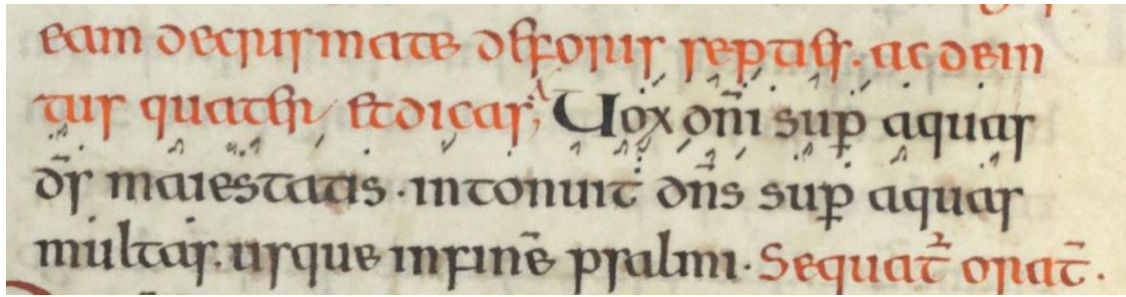 eam decrismate deforis septies. ac dein
tus quater et dicas; Uox dn̄i sup̄ aquas
d̄s maiestatis · intonuit dn̄s sup̄ aquas
multas. usque infinē psalmi · Sequat̄ orat̄ ·